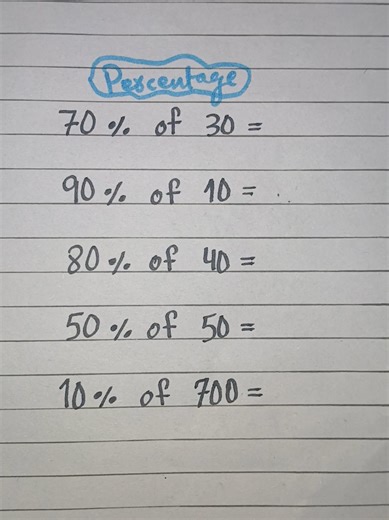 Percentage
70% of 30 =
90% of 10 =
80% of 40 =
50% of 50 =
10% of 700 =